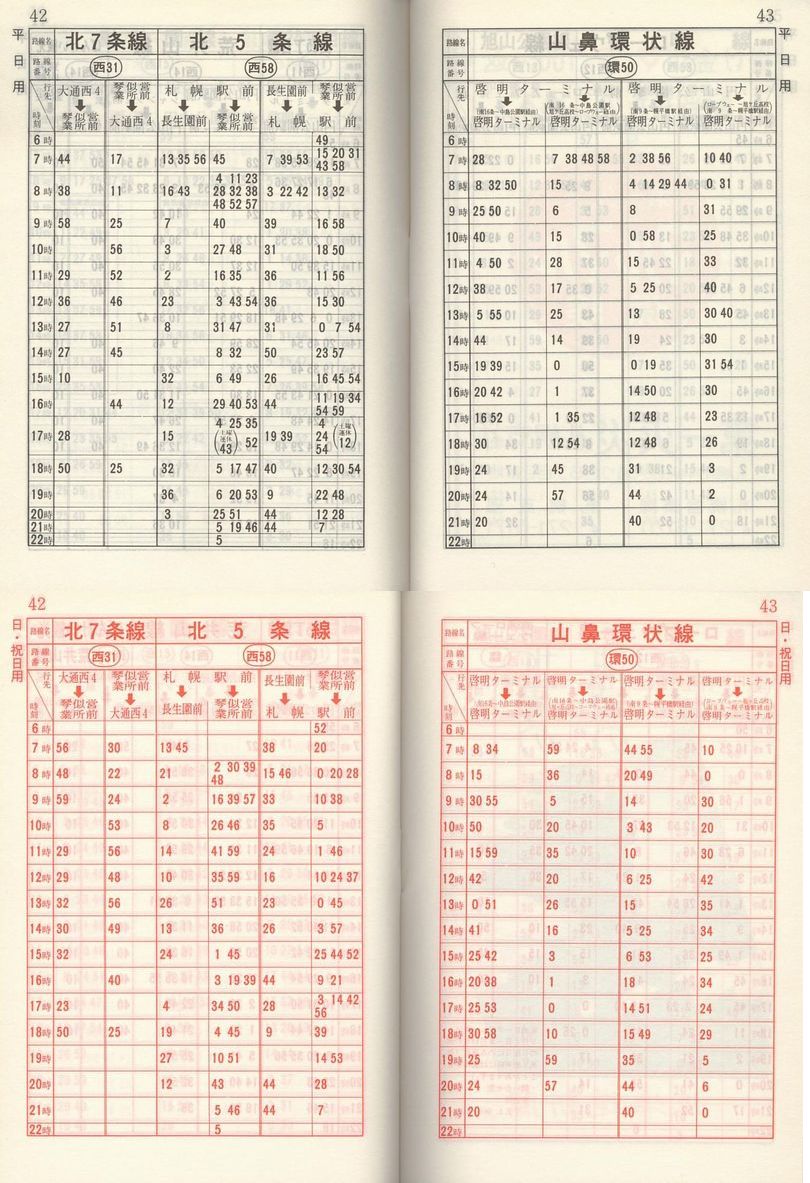 42
平日用
路線名 北7条線 北5条線
路線番号 西31 西58
行先 大通西4 琴似営業所前 札幌駅前 長生園前 琴似営業所前
時刻 琴似営業所前 大通西4 長生園前 琴似営業所前 札幌駅前
6時 49
7時 44 17 13 35 56 45 7 39 53 15 20 31 43 58
8時 38 11 16 43 4 11 23 28 32 38 48 52 57 3 22 42 13 32
9時 58 25 7 40 39 16 58
10時 56 3 27 48 31 18 50
11時 29 52 2 16 35 36 11 56
12時 36 46 23 3 43 54 36 15 30
13時 27 51 8 31 47 31 0 7 54
14時 27 45 8 32 50 23 57
15時 10 32 6 49 26 16 45 54
16時 44 12 29 40 53 44 11 19 34 54 59
17時 28 15 4 25 35 (土曜運休 43) 52 19 39 4 24 (土曜運休 12) 54
18時 50 25 32 5 17 47 40 12 30 54
19時 36 6 20 53 9 22 48
20時 3 25 51 44 12 28
21時 5 19 46 44 7
22時 5
43
平日用
路線名 山鼻環状線
路線番号 環50
行先 啓明ターミナル 啓明ターミナル
時刻 啓明ターミナル 啓明ターミナル 啓明ターミナル 啓明ターミナル
6時
7時 28 7 38 48 58 2 38 56 10 40
8時 8 32 50 15 4 14 29 44 0 31
9時 25 50 6 8 31
10時 40 15 0 58 25
11時 4 50 28 15 33
12時 38 17 5 25 40
13時 5 55 25 13 30 40
14時 44 14 19 30
15時 19 39 0 0 19 31 54
16時 20 42 1 14 50 30
17時 16 52 1 35 12 48 23
18時 30 12 54 12 48 26
19時 24 45 31 3
20時 24 57 44 2
21時 20 40 0
22時
42
日・祝日用
路線名 北7条線 北5条線
路線番号 西31 西58
行先 大通西4 琴似営業所前 札幌駅前 長生園前 琴似営業所前
時刻 琴似営業所前 大通西4 長生園前 琴似営業所前 札幌駅前
6時 52
7時 56 30 13 45 38 20
8時 48 22 21 2 30 39 48 15 46 0 20 28
9時 59 24 2 16 39 57 33 10 38
10時 53 8 26 46 35 5
11時 29 56 14 41 59 24 1 46
12時 29 48 10 35 59 16 10 24 37
13時 32 56 26 51 23 0 45
14時 30 49 13 36 26 3 57
15時 32 24 1 45 25 44 52
16時 40 3 19 39 44 9 21
17時 23 4 34 50 28 3 14 42 56
18時 50 25 19 4 45 9 39
19時 27 10 51 14 53
20時 12 43 44 28
21時 5 46 44 7
22時 5
43
日・祝日用
路線名 山鼻環状線
路線番号 環50
行先 啓明ターミナル 啓明ターミナル 啓明ターミナル 啓明ターミナル
時刻 啓明ターミナル 啓明ターミナル 啓明ターミナル 啓明ターミナル
6時
7時 8 34 59 44 55 10
8時 15 36 20 49 0
9時 30 55 5 14 30
10時 50 20 3 43 20
11時 15 59 35 10 30
12時 42 20 6 25 42
13時 0 51 26 15 35
14時 41 16 5 25 34
15時 25 42 3 6 53 25
16時 20 38 1 18 34
17時 25 53 0 14 51 24
18時 30 58 10 15 49 29
19時 25 59 35 5
20時 24 57 44 6
21時 20 40 0
22時